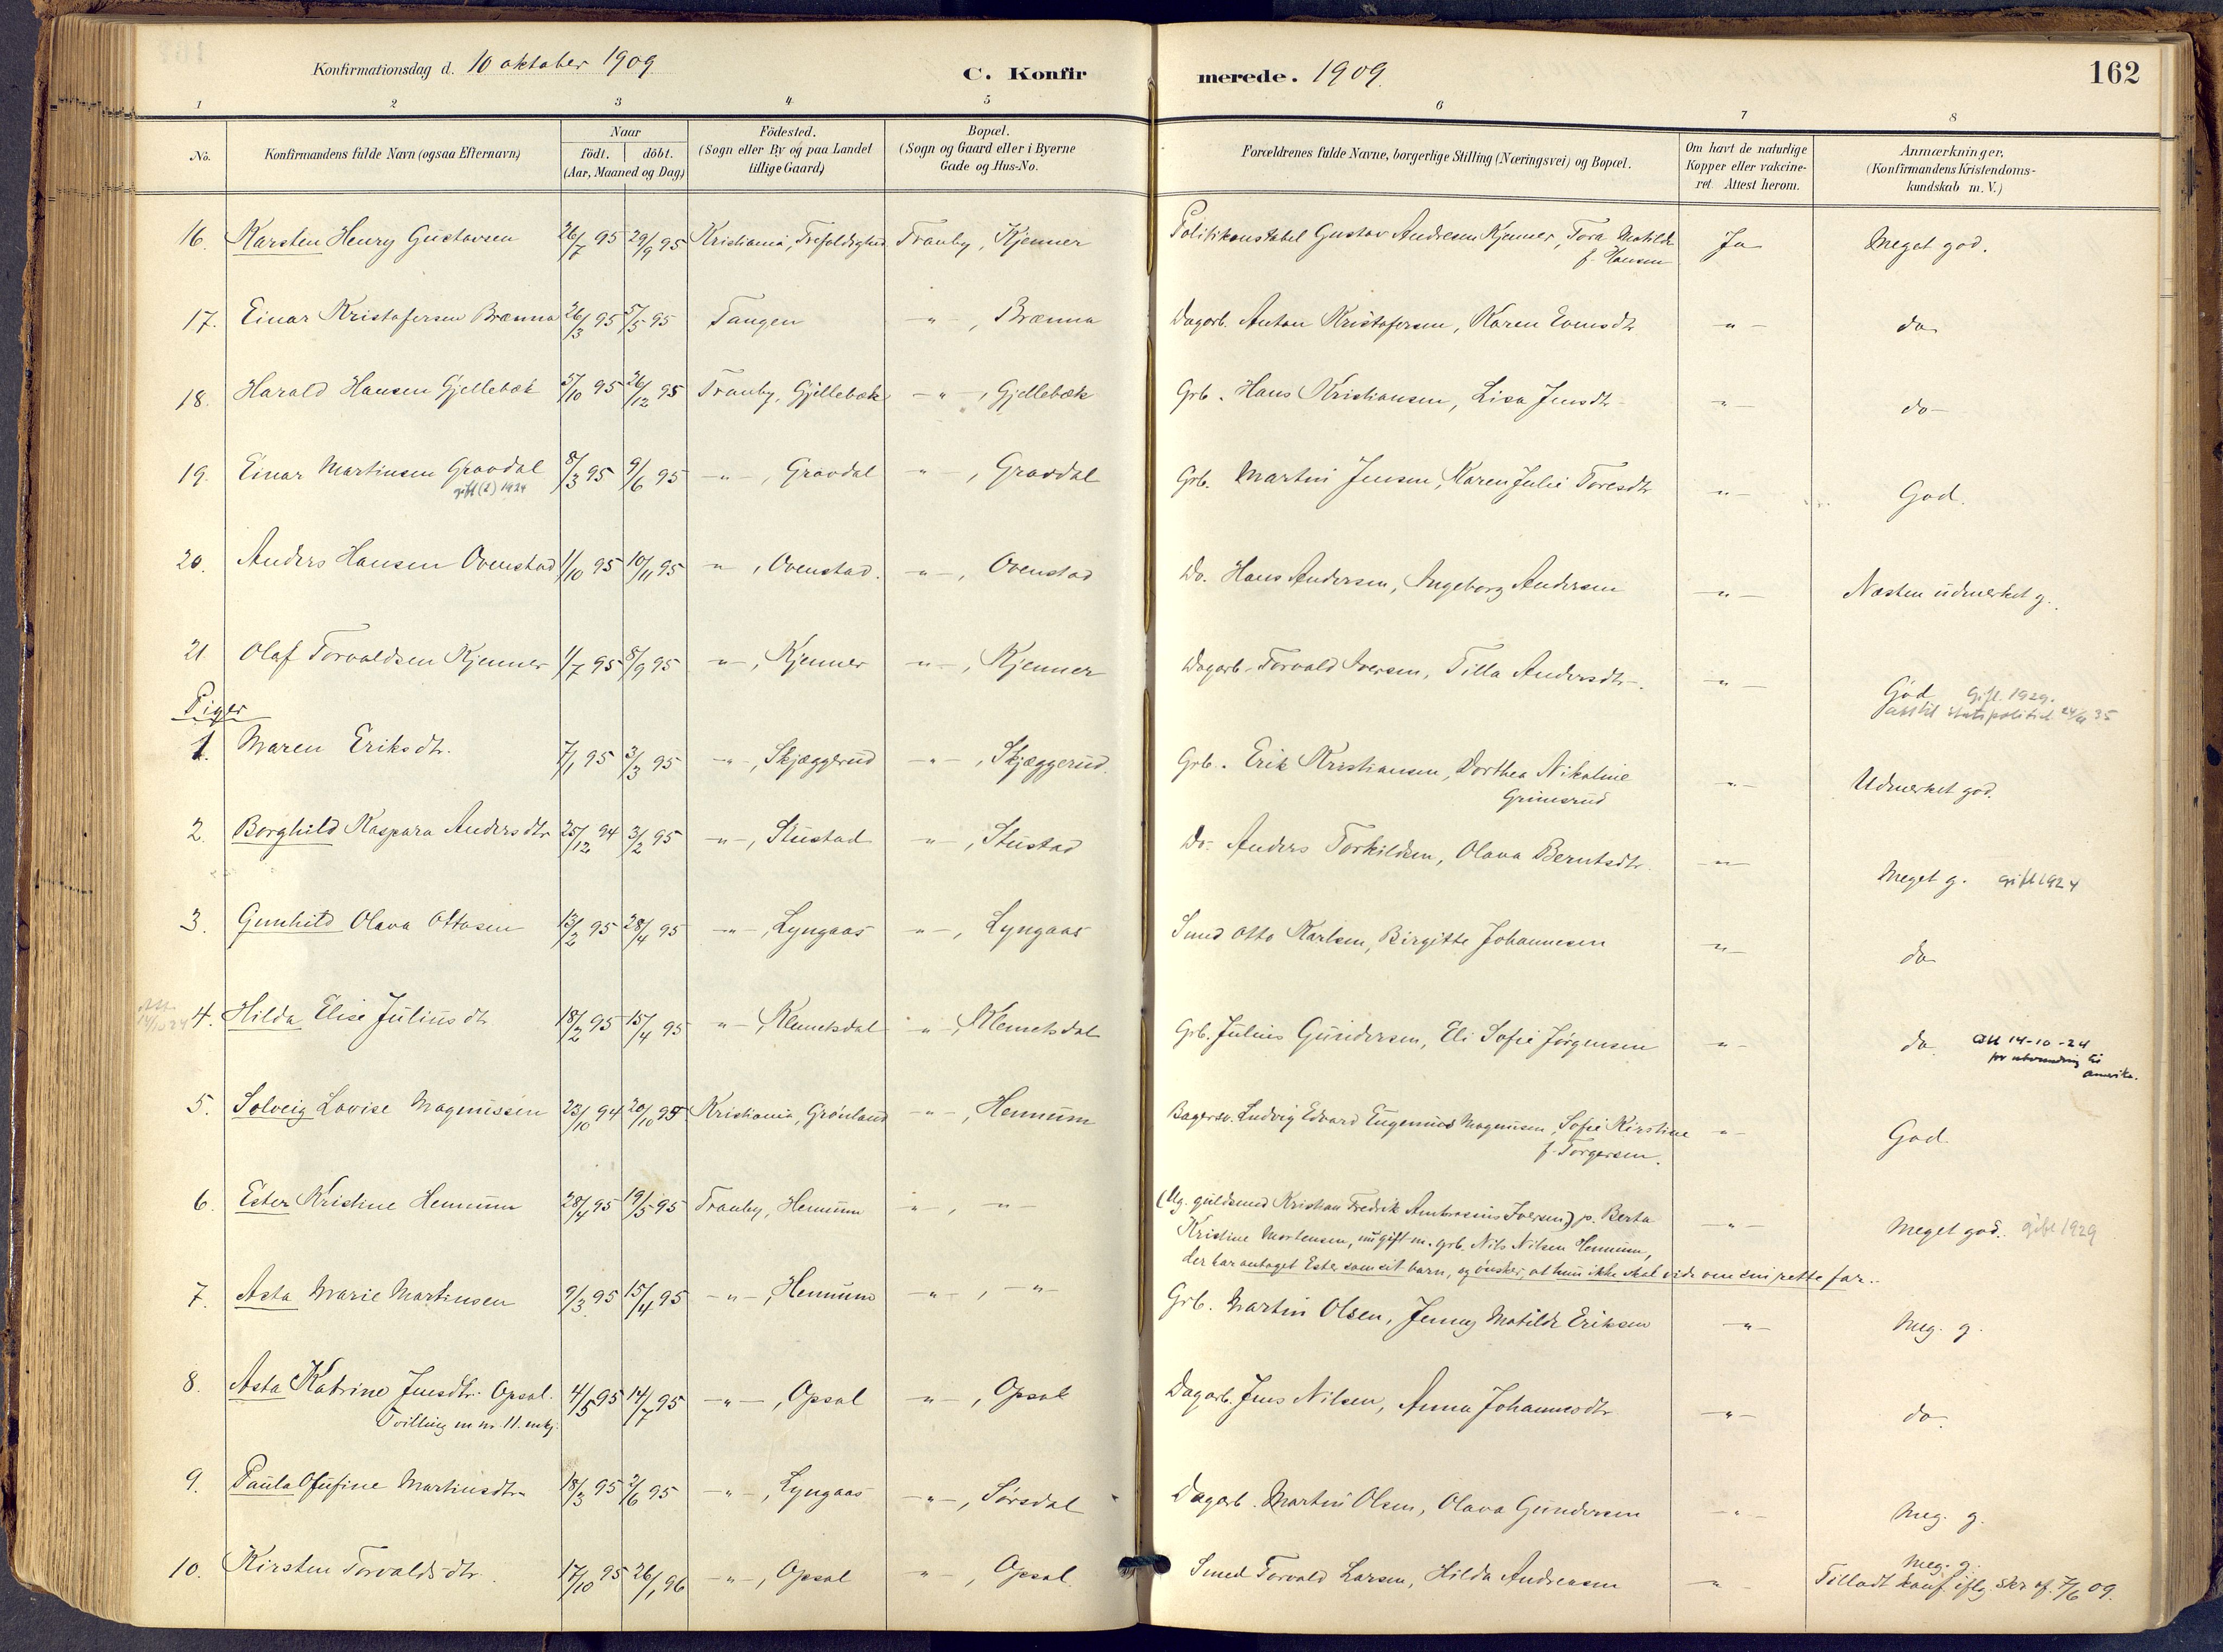 Konfirmationsdag d. 10 oktober 1909
C. Konfirmerede. 1909.
162
1 2 3 4 5 6 7 8
No. Konfirmandens fulde Navn (ogsaa Efternavn) Naar födt. döbt. (Aar, Maaned og Dag) Födested. (Sogn eller By og paa Landet tillige Gaard) Bopæl. (Sogn og Gaard eller i Byerne Gade og Hus-No. Forældrenes fulde Navne, borgerlige Stilling (Næringsvei) og Bopæl. Om havt de naturlige Kopper eller vakcineret. Attest herom. Anmærkninger. (Konfirmandens Kristendomskundskab m. V.)
16. Karsten Henry Gustavsen 26/7 95 29/9 95 Kristiania, Trefoldighed Tranby, Kjenner Politikonstabel Gustav Andresen Kjenner, Tora Matilde f. Hansen Ja Meget god.
17. Einar Kristofersen Brænna 26/3 95 5/5 95 Tangen -"-, Brænna Dagarb. Anton Kristofersen, Karen Evensdtr -"- do
18. Harald Hansen Gjellebæk 5/10 95 26/12 95 Tranby, Gjellebæk -"-, Gjellebæk Grb. Hans Kristiansen, Lisa Jensdtr -"- do
19. Einar Martinsen Gravdal 8/3 95 9/6 95 -"-, Gravdal -"-, Gravdal Grb. Martin Jensen, Karen Julie Toresdtr -"- God.
gift (2) 1924
20. Anders Hansen Ovenstad 1/10 95 10/11 95 -"-, Ovenstad. -"-, Ovenstad Do. Hans Andersen, Ingeborg Andersen -"- Næsten udmerket g.
21. Olaf Torvaldsen Kjenner 1/7 95 8/9 95 -"-, Kjenner -"-, Kjenner Dagarb. Torvald Iversen, Tilla Andersdtr. -"- God Gift 1929.
statspolitiet 35
Piger
1. Maren Eriksdtr. 7/1 95 3/3 95 -"-, Skjæggerud -"-, Skjæggerud. Grb. Erik Kristiansen, Dorthea Nikoline Grimsrud -"- Udmerket god.
2. Borghild Kaspara Andersdtr 25/12 94 3/2 95 -"-, Stustad -"-, Stustad Do. Anders Torkildsen, Olava Berntsdtr. -"- Meget g. gift 1924
3. Gunhild Olava Ottosen 13/2 95 28/4 95 -"-, Lyngaas -"-, Lyngaas Smed Otto Karlsen, Birgitte Johannesen -"- do
14/10 24 4. Hilda Elise Juliusdtr 18/2 95 15/4 95 -"-, Klemetsdal -"-, Klemetsdal Grb. Julius Gundersen, Eli Sofie Jørgensen -"- do. att 14-10-24
for utvandring til
Amerika.
5. Solveig Lovise Magnussen 23/10 94 20/10 95 Kristiania, Grønland -"-, Hennum Bagersv. Ludvig Edvard Eugenius Magnusen, Sofie Kirstine f. Torgersen. -"- God.
6. Ester Kristine Hennum 28/4 95 19/5 95 Tranby, Hennum -"-, -"- (Ug. guldsmed Kristian Fredrik Ambrosius Iversen) p. Berta
Kristine Mortensen, nu gift m. grb. Nils Nilsen Hennum,
der har antaget Ester som sit barn, og ønsker, at hun ikke skal vide om sin rette far.
-"- Meget god. gift 1929
7. Asta Marie Martinsen 9/3 95 15/4 95 -"-, Hennum -"-, -"- Grb. Martin Olsen, Jenny Matilde Eriksen -"- Meg. g.
8. Asta Katrine Jensdtr. Opsal. 4/5 95 14/7 95 -"-, Opsal -"-, Opsal Dagarb. Jens Nilsen, Anna Johannesdtr -"- do.
Tvilling m nr. 11.
9. Paula Olufine Martinsdtr 18/3 95 2/6 95 -"-, Lyngaas -"-, Sørsdal Dagarb. Martin Olsen, Olava Gundersen -"- Meg. g.
10. Kirsten Torvaldsdtr. 17/10 95 26/1 96 -"-, Opsal -"-, Opsal. Smed Torvald Larsen, Hilda Andreasen -"- Meg. g.
Tilladt konf. iflg. skr af 7/6 09.